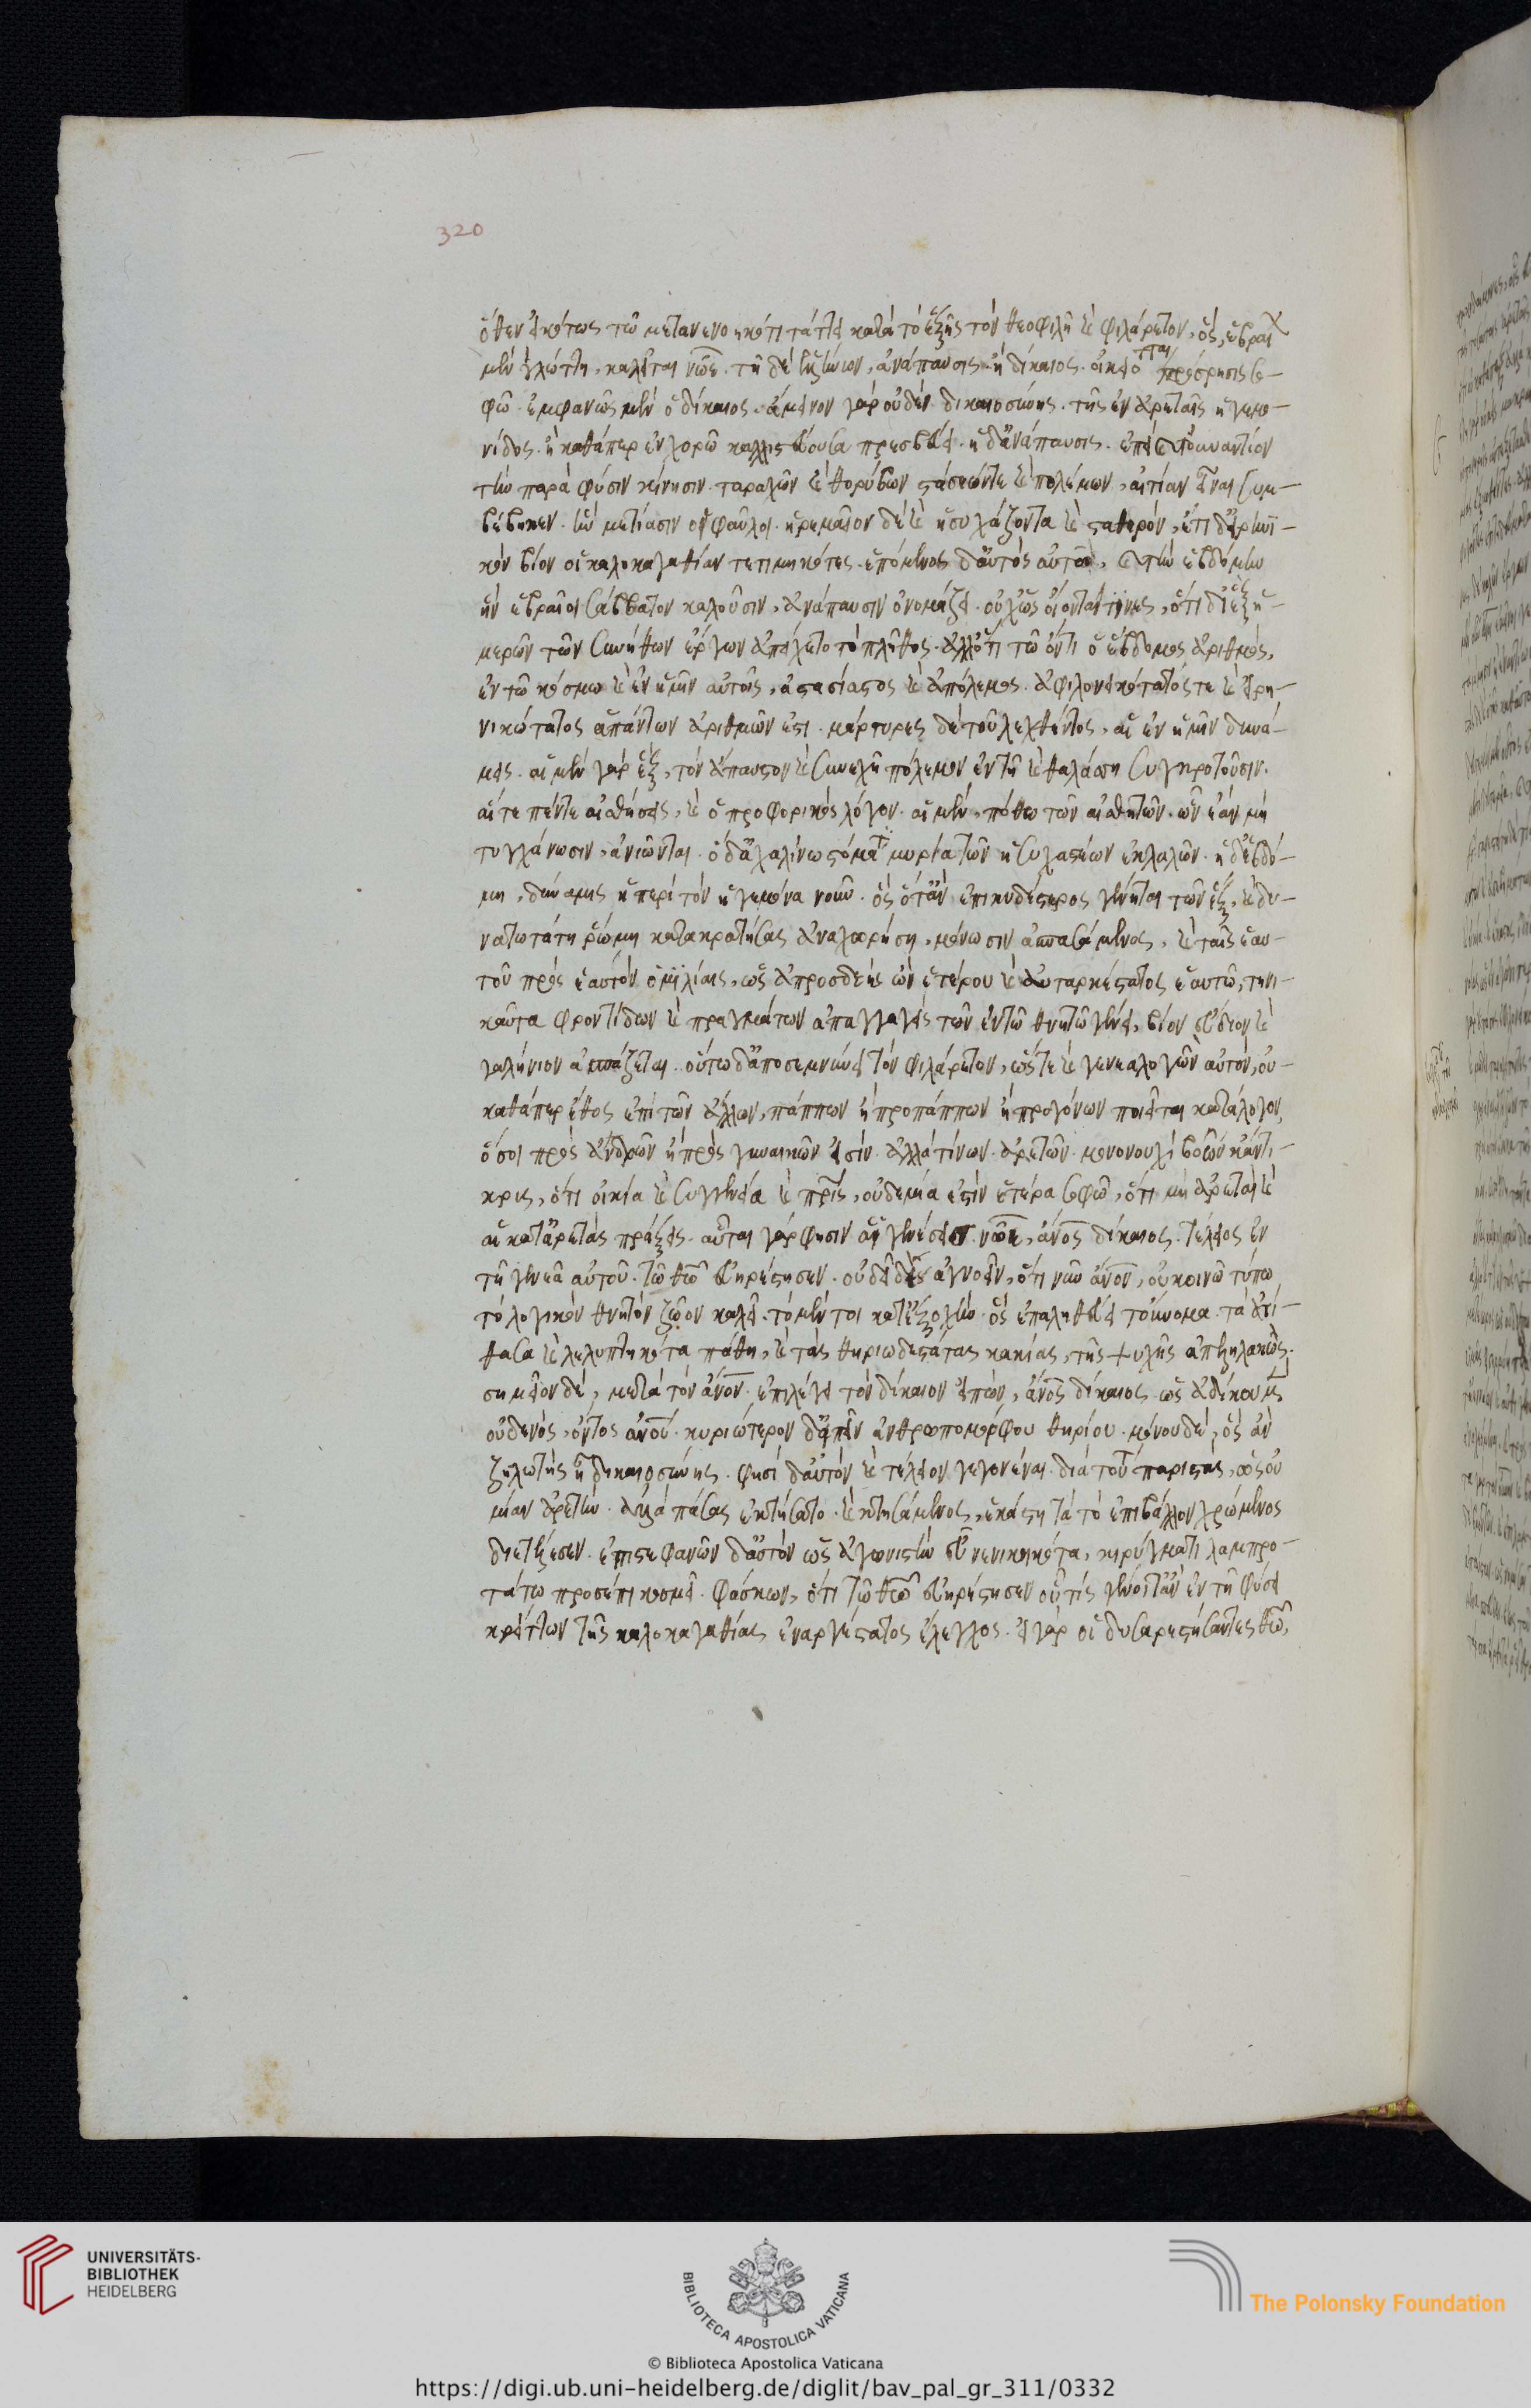 320
ὅθεν εἰκότως τῷ μετανενοηκότι τάττει κατὰ τὸ ἑξῆς τὸν θεοφιλῆ καὶ φιλάρετον, ὃς, ἑβραί
μὲν γλώττη, καλεῖται νῶε. τῆ δὲ ἑλλήνων, ἀνάπαυσις ἢ δίκαιος. οἰκεῖο πρόσρησις σο-
φῶ. ἐμφανῶς μὲν ὁ δίκαιος. ἄμεινον γὰρ οὐδὲν δικαιοσύνης. τῆς ἐν ἀρεταῖς ἡγεμο-
νίδος. ἢ καθάπερ ἐν χορῶ καλλιστεύουσα πρεσβεύει. ἡ δ' ἀνάπαυσις. ἐπεὶ καὶ τοὐναντίον
τὴν παρὰ φύσιν κίνησιν ταραχῶν καὶ θορύβων στάσεών τε καὶ πολέμων, αἰτίαν εἶναι συμ-
βέβηκεν. ἣν μετίασιν οἱ φαῦλοι. ἠρεμαῖον δὲ καὶ ἡσυχάζοντα καὶ σταθερὸν, ἔτι δ' εἰρηνι-
κὸν βίον οἱ καλοκαγαθίαν τετιμηκότες. ἑπόμενος δ' αὐτὸς αὑτῶ, καὶ τὴν ἑβδόμην
ἣν ἑβραῖοι σάββατον καλοῦσιν, ἀνάπαυσιν ὀνομάζει. οὐχ ὡς οἴονταί τινες, ὅτι δι' ἓξ ἡ-
μερῶν τῶν συνήθων ἔργων ἀπείχετο τὸ πλῆθος. ἀλλ' ὅτι τῶ ὄντι ὁ ἕβδομος ἀριθμὸς,
ἐν τῶ κόσμω καὶ ἐν ἡμῖν αὐτοῖς, ἀστασίαστος καὶ ἀπόλεμος. ἀφιλονεικότατός τε καὶ εἰρη-
νικώτατος ἁπάντων ἀριθμῶν ἐστι. μάρτυρες δὲ τοῦ λεχθέντος, αἱ ἐν ἡμῖν δυνά-
μεις. αἱ μὲν γὰρ ἓξ, τὸν ἄπαυστον καὶ συνεχῆ πόλεμον ἐν γῆ καὶ θαλάττη συγκροτοῦσιν.
αἵ τε πέντε αἰσθήσεις, καὶ ὁ προφορικὸς λόγος. αἱ μὲν, πόθω τῶν αἰσθητῶν. ὧν ἐὰν μὴ
τυγχάνωσιν, ἀνιῶνται. ὁ δ' ἀχαλίνω στόματι μυρία τῶν ἡσυχαστέων ἐκλαλῶν. ἡ δ' ἑβδό-
μη, δύναμις ἡ περὶ τὸν ἡγεμόνα νοῦν. ὃς ὅταν ἐπικυδέστερος γένηται τῶν ἓξ, καὶ δυ-
νατωτάτη ῥώμη κατακρατήσας ἀναχωρήση, μόνωσιν ἀσπασάμενος, καὶ ταῖς ἑαυ-
τοῦ πρὸς ἑαυτὸν ὁμιλίαις, ὡς ἀπροσδεὴς ὢν ἑτέρου καὶ αὐταρκέστατος ἑαυτῶ, τηνι-
καῦτα φροντίδων καὶ πραγμάτων ἀπαλλαγεὶς τῶν ἐν τῶ θνητῶ γένει, βίον εὔδιον καὶ
γαλήνιον ἀσπάζεται. οὕτω δ' ἀποσεμνύνει τὸν φιλάρετον, ὥστε καὶ γενεαλογῶν αὐτὸν, οὐ
καθάπερ ἔθος ἐπὶ τῶν ἄλλων, πάππων ἢ προπάππων ἢ προγόνων ποιεῖται κατάλογον,
ὅσοι πρὸς ἀνδρῶν ἢ πρὸς γυναικῶν εἰσίν. ἀλλά τινων ἀρετῶν. μονονουχὶ βοῶν κἄντι-
κρυς, ὅτι οἰκία καὶ συγγένεια καὶ πρὶς, οὐδεμία ἐστὶν ἑτέρα σοφῶ, ὅτι μὴ ἀρεταὶ καὶ
αἱ κατ' ἀρετὰς πράξεις. αὗται γάρ φησιν αἱ γενέσεις νῶε, ἄνος δίκαιος. τέλειος ἐν
τῆ γενεᾶ αὐτοῦ. τῶ θεῶ εὐηρέστησεν. οὐ δεῖ δὲ ἀγνοεῖν, ὅτι νῦν ἄνον, οὐ κοινῶ τύπω
τὸ λογικὸν θνητὸν ζῶον καλεῖ. τὸ μέντοι κατ' ἐξοχὴν. ὃς ἐπαληθεύει τοὔνομα. τὰ ἀτί-
θασα καὶ λελυττηκότα πάθη, καὶ τὰς θηριωδεστάτας κακίας, τῆς ψυχῆς ἀπεληλακώς.
σημεῖον δὲ, μετὰ τὸν ἄνον. ἐπιλέγει τὸν δίκαιον εἰπὼν, ἄνος δίκαιος. ὡς ἀδίκου μὲν
οὐδενὸς, ὄντος ἀνου. κυριώτερον δ' εἰπεῖν ἀνθρωπομόρφου θηρίου. μόνου δὲ, ὃς ἂν
ζηλωτὴς ἦ δικαιοσύνης. φησὶ δ' αὐτὸν καὶ τέλειον γεγονέναι. διὰ τούτου παριστὰς, ὡς οὐ
μίαν ἀρετὴν. ἀλλὰ πάσας ἐκτήσατο. καὶ κτησάμενος, ἑκάστη κατὰ τὸ ἐπιβάλλον χρώμενος
διετέλεσεν. ἐπιστεφανῶν δ' αὐτὸν ὡς ἀγωνιστὴν ἐκνενικηκότα, κηρύγματι λαμπρο-
τάτω προσεπικοσμεῖ. φάσκων, ὅτι τῶ θεῶ εὐηρέστησεν οὗ τίς γένοιτ' ἂν ἐν τῆ φύσει
κρείττων τῆς καλοκαγαθίας ἐναργέστατος ἔλεγχος. εἰ γὰρ οἱ δυσαρεστήσαντες θεῶ,
UNIVERSITÄTS-
BIBLIOTHEK
HEIDELBERG
BIBLIOTECA APOSTOLICA VATICANA
The Polonsky Foundation
© Biblioteca Apostolica Vaticana
https://digi.ub.uni-heidelberg.de/diglit/bav_pal_gr_311/0332